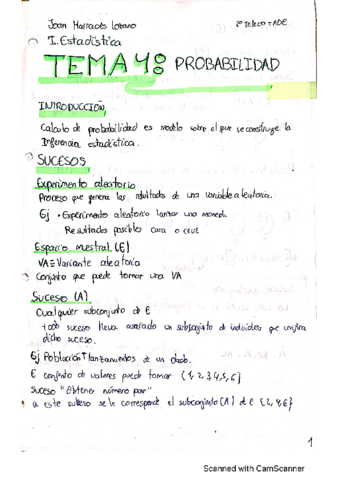 Joan Marraoés Lozano 2º Teleco + ADE
I. Estadística
TEMA 4: PROBABILIDAD
INTRODUCCIÓN
Calculo de probabilidad es modelo sobre el que se construye la
Inferencia estadística.
SUCESOS
Experimento aleatorio
Proceso que genera los resultados de una variable aleatoria.
Ej • Experimento aleatorio lanzar una moneda
Resultados posibles cara o cruz
Espacio mestral (E)
VA ≡ Variante aleatoria
Conjunto que puede tomar una VA
Suceso (A)
Cualquier subconjunto de E
todo suceso lleva asociado un subconjunto de individuos que
dicho suceso.
Ej Población: lanzamientos de un dado.
E conjunto de valores puede tomar {1, 2, 3, 4, 5, 6}
Suceso "Obtener número par"
a este suceso se le corresponde el subconjunto (A) de E {2, 4, 6}
1
Scanned with CamScanner